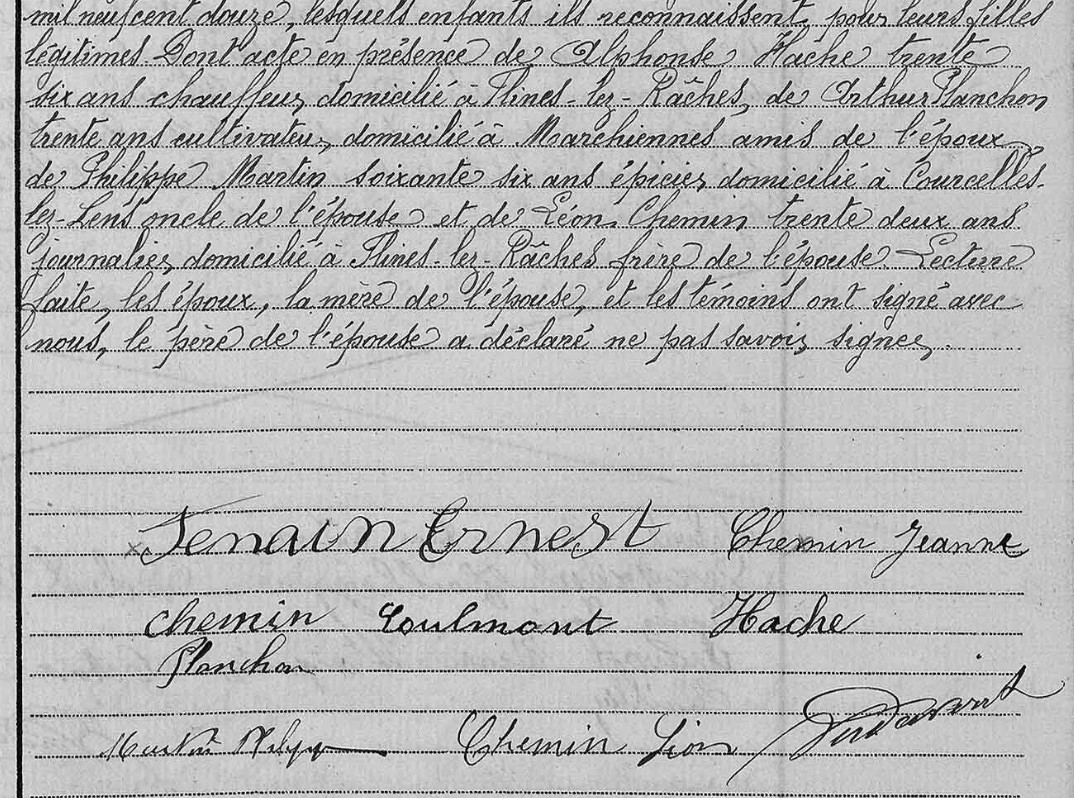 mil neuf cent douze, lesquels enfants ils reconnaissent pour leurs filles
légitimes. Dont acte en présence de Alphonse Hache trente
six ans chauffeur, domicilié à Flines-lez-Râches, de Arthur Planchon
trente ans cultivateur, domicilié à Marchiennes amis de l'époux,
de Philippe Martin soixante six ans épicier, domicilié à Courcelles-
lez-Lens oncle de l'épouse et de Léon Chemin trente deux ans
journalier, domicilié à Flines-lez-Râches frère de l'épouse. Lecture
faite, les époux, la mère de l'épouse, et les témoins ont signé avec
nous, le père de l'épouse a déclaré ne pas savoir signer.
Tenain Ernest Chemin Jeanne
chemin Coulmont Hache
Planchon
Martin Philippe Chemin Léon